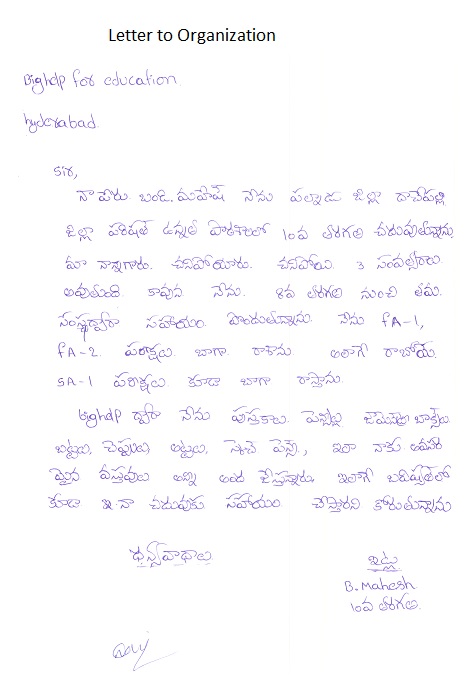 Letter to Organization
Bighelp for education
hyderabad.
sir,
నా పేరు బండి. మహేష్ నేను పల్నాడు జిల్లా దాచేపల్లి
జిల్లా పరిషత్ ఉన్నత పాఠశాలలో 10వ తరగతి చదువుతున్నాను.
మా నాన్నగారు. చనిపోయారు. చనిపోయి. 3 సంవత్సరాలు
అవుతుంది. కావున నేను. 8వ తరగతి నుంచి తమ.
సంస్థద్వారా సహాయం. పొందుతున్నాను. నేను FA-1,
FA-2. పరీక్షలు. బాగా. రాశాను. అలాగే రాబోయే.
SA-1 పరీక్షలు. కూడా బాగా రాస్తాను.
Bighelp ద్వారా నేను పుస్తకాలు. పెన్నులు జామెట్రీ బాక్సులు.
బట్టలు, చెప్పులు, అట్టలు, స్కెచ్ పెన్స్, ఇలా నాకు అవసర
మైన వస్తువులు అన్ని అంద చేస్తున్నారు. ఇలాగే భవిష్యత్‌లో
కూడా ఇ నా చదువుకు సహాయం చేస్తారని కోరుతున్నాను
ధన్యవాదాలు,
ఇట్లు
B. Mahesh
10వ తరగతి.